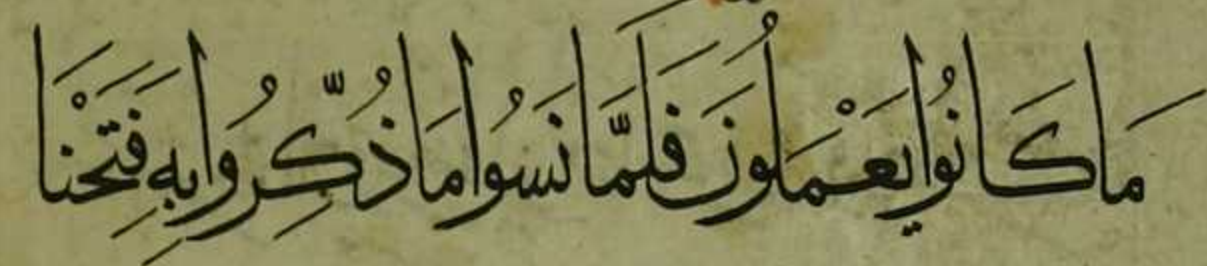 مَا كَانُوا يَعْمَلُونَ فَلَمَّا نَسُوا مَا ذُكِّرُوا بِهِ فَتَحْنَا